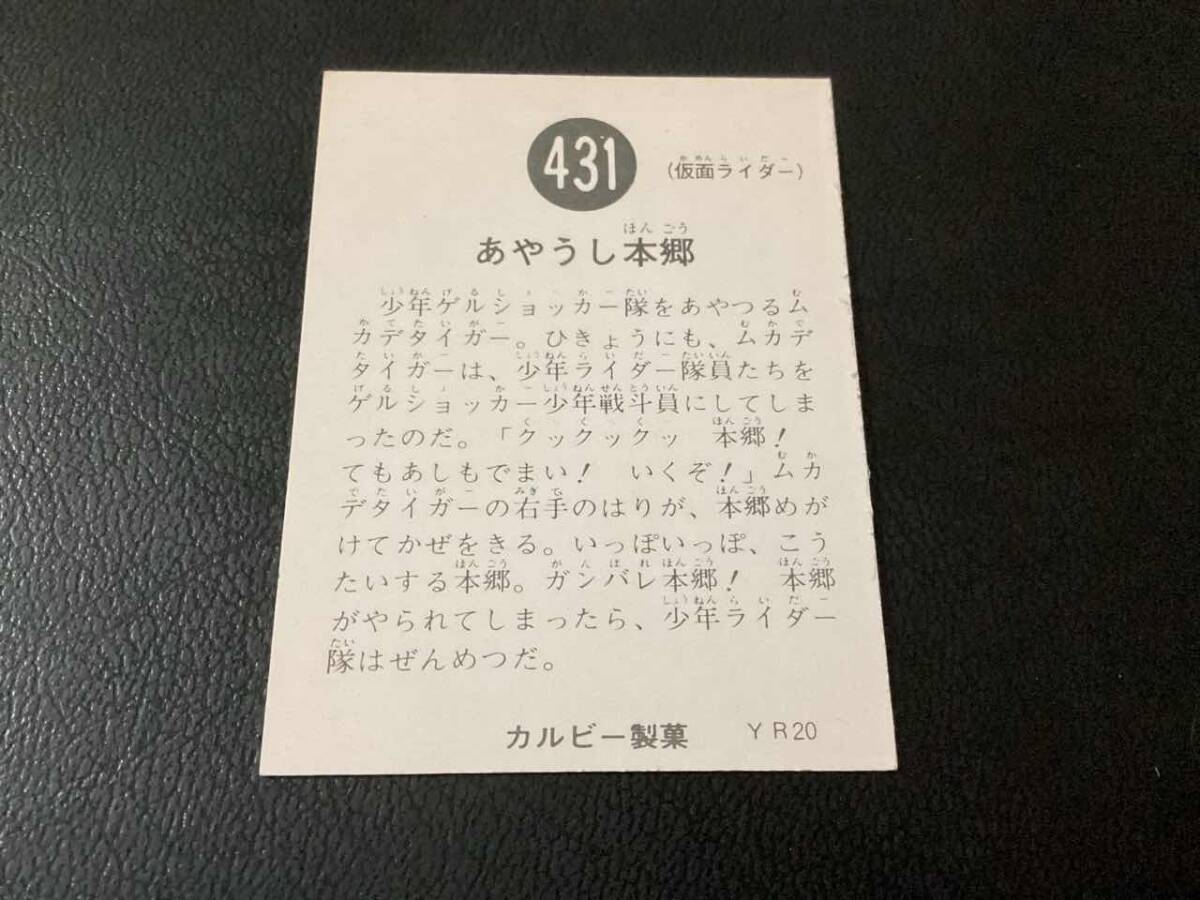 431
(仮面ライダー)
あやうし本郷
少年ゲルショッカー隊をあやつるム
カデタイガー。ひきょうにも、ムカデ
タイガーは、少年ライダー隊員たちを
ゲルショッカー少年戦斗員にしてしま
ったのだ。「クックックッ　本郷！
てもあしもでまい！　いくぞ！」ムカ
デタイガーの右手のはりが、本郷めが
けてかぜをきる。いっぽいっぽ、こう
たいする本郷。ガンバレ本郷！　本郷
がやられてしまったら、少年ライダー
隊はぜんめつだ。
カルビー製菓　ＹＲ20